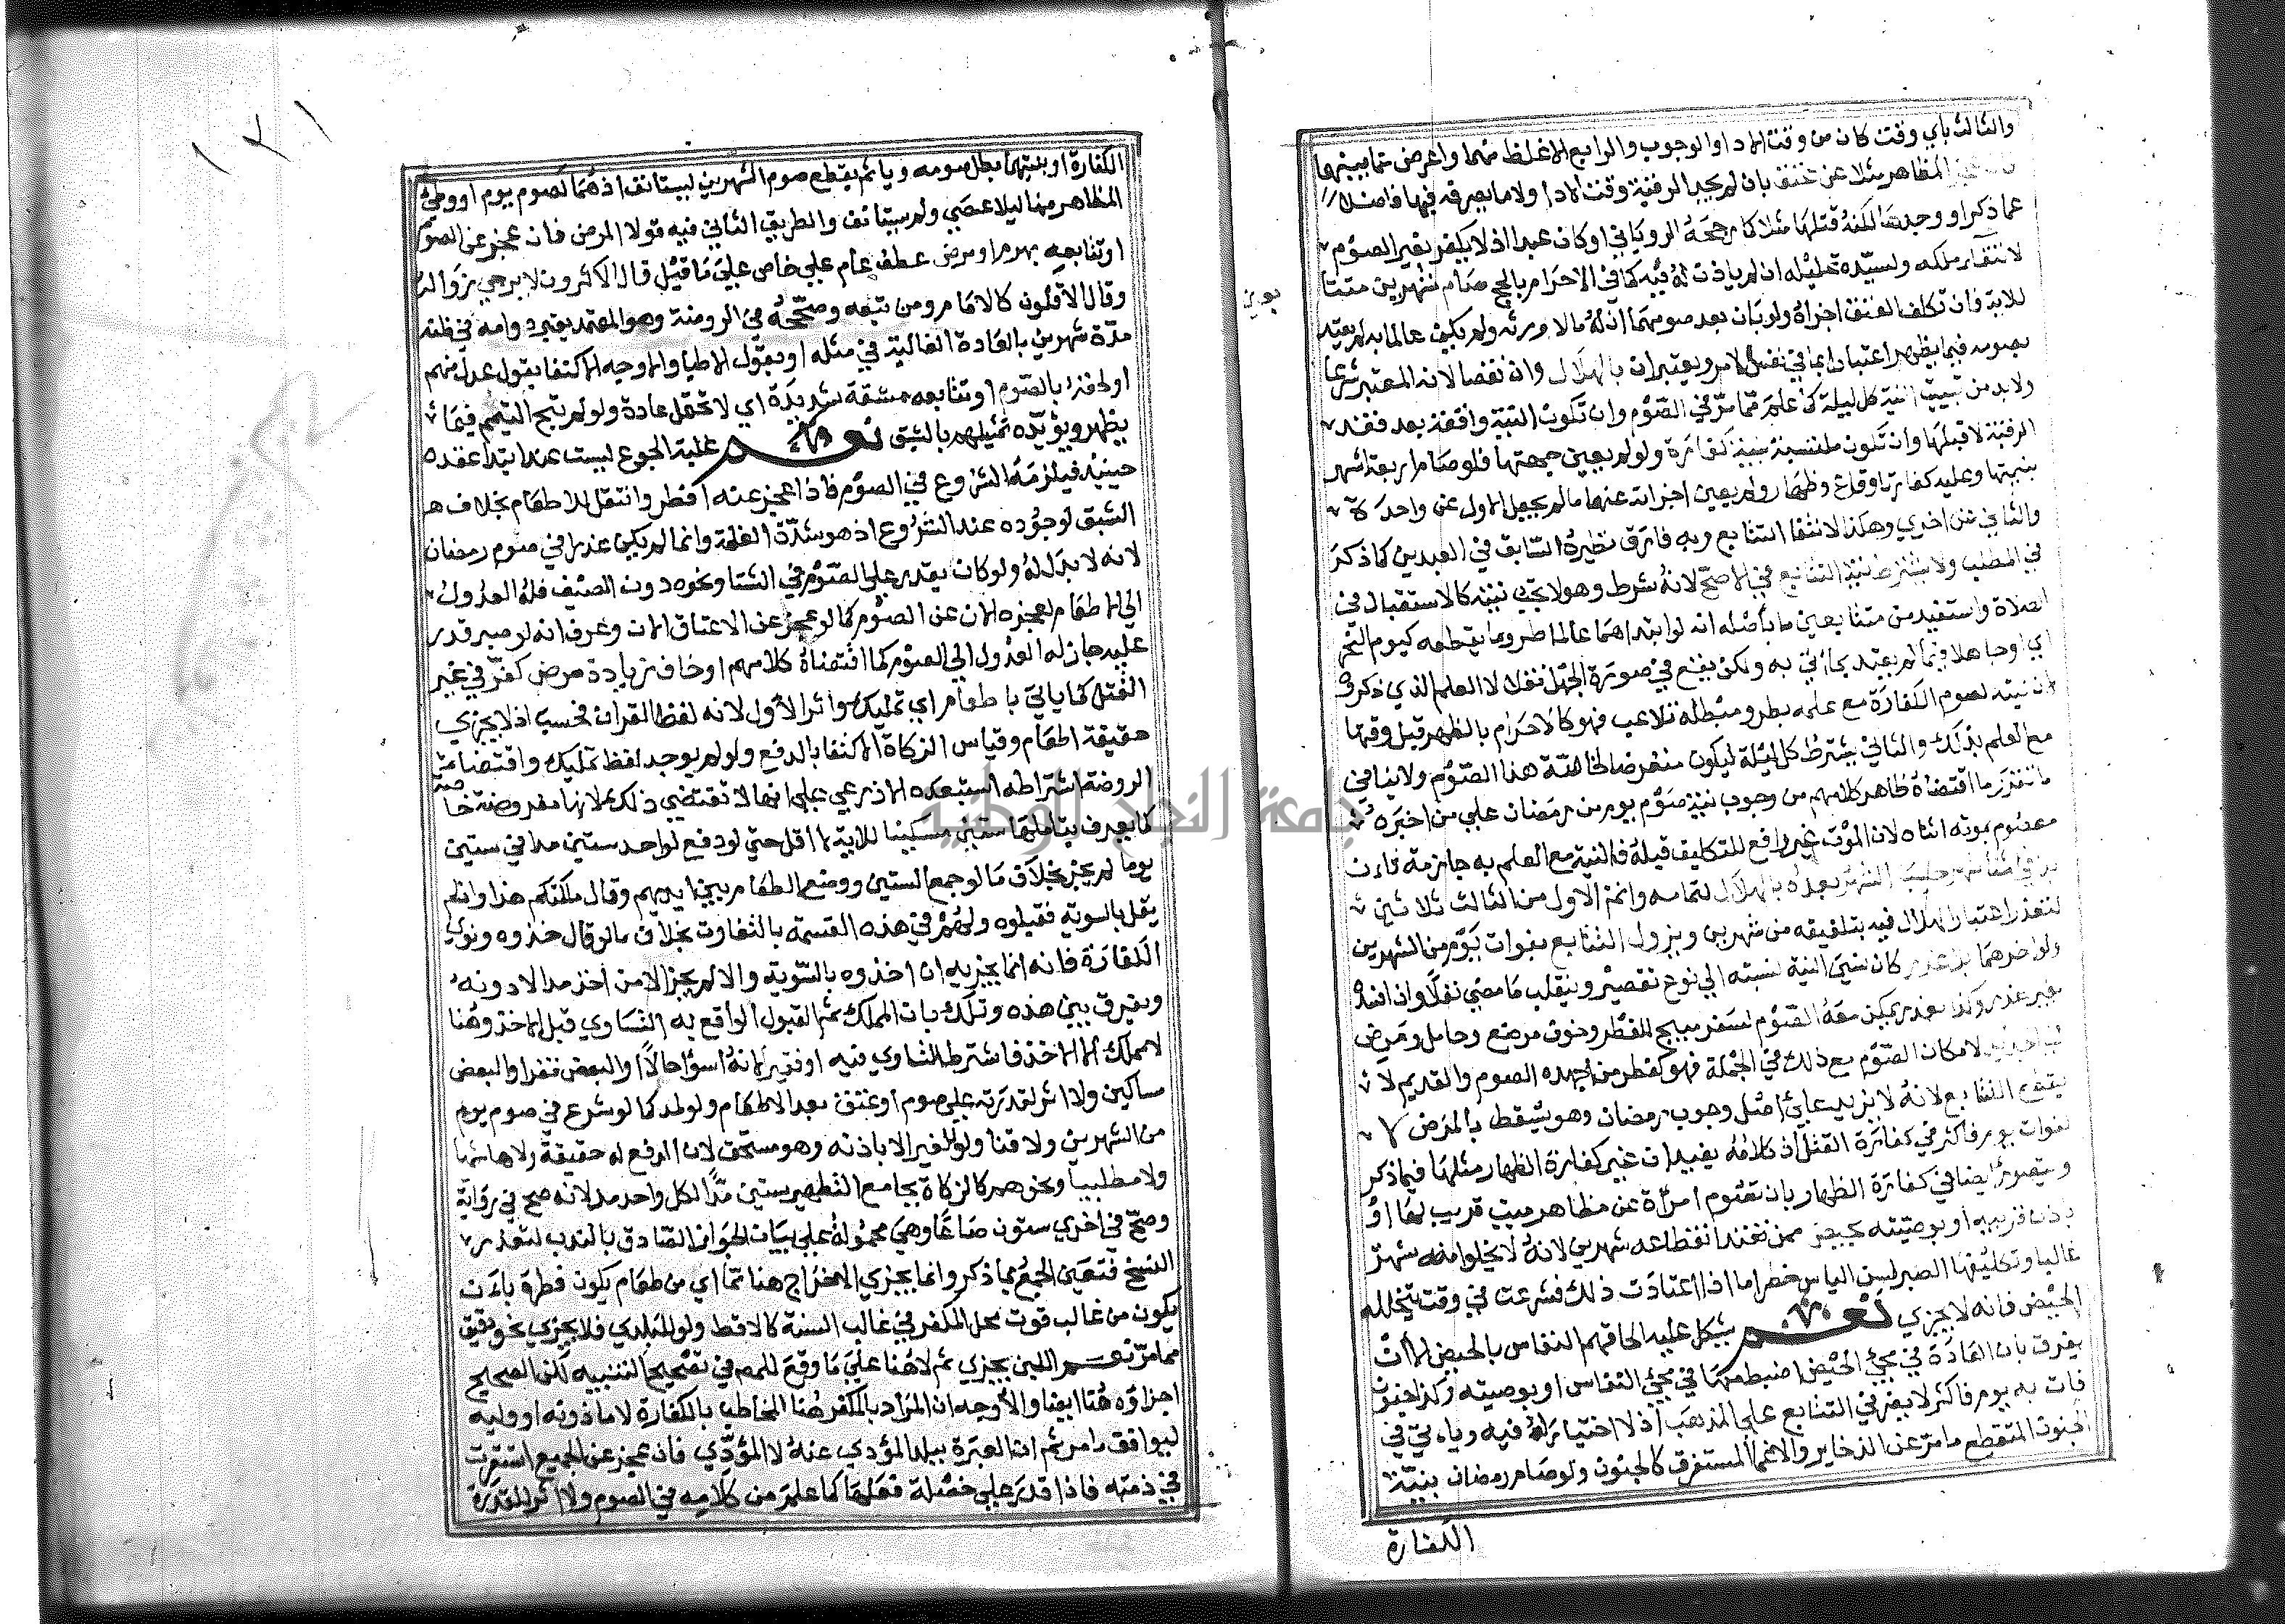 والثالث باي وقت كان من وقت الادا او الوجوب والرابع الاغلظ منهما واعرض عما بينهما
المظاهر مثلا عن عتق بان لم يجد الرقبة وقت الادا ولا ما يصرفه فيها فاضلا
عما ذكر او وجدها لكنه قتلها مثلا كما رجحه الروياني او كان عبدا اذ لا يكفر بغير الصوم
لانتفاء ملكه ولسيده تحليله ان لم ياذن له فيه كما في الاحرام بالحج صام شهرين متتا
للاية فان تكلف العتق اجزاه ولو بان بعد صومهما ان له مالا ورثه ولم يكن عالما به لم يعتد
بصومه فيما يظهر اعتبارا بما في نفس الامر ويعتبران بالهلال وان نقصا لانه المعتبر شرعا
ولا بد من تبييت النية كل ليلة كما علم مما مر في الصوم وان تكون النية واقعة بعد فقد
الرقبة لا قبلها وان تكون ملتبسة بنية كفارة ولو لم يعين جهتها فلو صام اربعة اشهر
بنيتها وعليه كفارتا وقاع وظهار ولم يعين اجزاته عنهما ما لم يجعل الاول عن واحدة
والثاني عن اخري وهكذا لانتفا التتابع وبه فارق نظيره السابق في العبدين كما ذكر
في المطلب ولا يشترط نية التتابع في الاصح لانه شرط وهو لا يجب نيته كالاستقبال في
الصلاة واستفيد من متتابعين ما باصله انه لو ابتداهما عالما طرو ما يقطعه كيوم النحر
اي او جاهلا فيما لم يعتد بما اتي به ولكن يقع في صورة الجهل نفلا لا العلم الذي ذكره
ان نيته لصوم الكفارة مع علمه بطرو مبطله تلاعب فهو كالاحرام بالظهر قبل وقتها
مع العلم بذلك والثاني يشترط كل ليلة ليكون متعرضا لخاصة هذا الصوم ولا ينافي
ما تقرر ما اقتضاه ظاهر كلامهم من وجوب نية صوم يوم من رمضان علي من اخبره
معصوم بموته اثناه لان الموت غير رافع للتكليف قبله فالنية مع العلم به جازمة فان
حسب الشهر بعده بالهلال لتمامه واتم الاول من الثالث ثلاثين
لتعذر اعتبار الهلال فيه بتلفيقه من شهرين ويزول التتابع بفوات يوم من الشهرين
ولو اخرهما بلا عذر كان نسي النية لنسبته الي نوع تقصير وينقلب ما مضي نفلا وان افسد
بغير عذر وكذا بعذر يمكن معه الصوم كسفر مبيح للفطر وخوف مرضع وحامل ومرض
في الجديد لامكان الصوم مع ذلك في الجملة فهو كفطر من اجهده الصوم والقديم لا
يقطع التتابع لانه لا يزيد علي اصل وجوب رمضان وهو يسقط بالمرض لا
بفوات يوم فاكثر في كفارة القتل اذ كلامه يفيد ان غير كفارة الظهار مثلها فيما ذكر
ويتصور ايضا في كفارة الظهار بان تصوم امراة عن مظاهر ميت قريب لها او
باذن قريبه او بوصيته بحيض ممن تعتد انقطاعه شهرين لانه لا يخلوا منه شهر
غالبا وتكليفها الصبر لسن الياس خطر اما اذا اعتادت ذلك فشرعت في وقت يتخلله
الحيض فانه لا يجزي نعم يشكل عليه الحاقهم النفاس بالحيض الا ان
يفرق بان العادة في مجئ الحيض اضبط منها في مجئ النفاس او بوصيته وكذا جنون
فات به يوم فاكثر لا يضر في التتابع علي المذهب اذ لا اختيار له فيه وياتي في
الجنون المتقطع ما مر عن الذخاير والاغما المستغرق كالجنون ولو صام رمضان بنية
الكفارة
يعين
١٧١
الكفارة او بنيتهما بطل صومه وياثم بقطع صوم الشهرين ليستانف اذ هما كصوم يوم او وطئ
المظاهر منها ليلا عصي ولم يستانف والطريق الثاني فيه قولا المرض فان عجز عن الصوم
او تتابعه بهرم او مرض عطف عام علي خاص علي ما قيل قال الاكثرون لا يرجي زواله
وقال الاقلون كالامام ومن تبعه وصححه في الروضة وهو المعتمد يعتبر دوامه في ظنه
مدة شهرين بالعادة الغالبة في مثله او بقول الاطبا والاوجه الاكتفا بقول عدل منهم
او لحقه بالصوم او تتابعه مشقة شديدة اي لا تحتمل عادة ولو لم تبح التيمم فيما
يظهر ويؤيده تمثيلهم بالشبق نعم غلبة الجوع ليست عذرا ابتدا لفقده
حينيذ فيلزمه الشروع في الصوم فاذا عجز عنه افطر وانتقل للاطعام بخلاف
الشبق لوجوده عند الشروع اذ هو شدة الغلمة وانما لم يكن عذرا في صوم رمضان
لانه لا بدل له ولو كان يقدر علي الصوم في الشتا ونحوه دون الصيف فله العدول
الي الاطعام لعجزه الان عن الصوم كما لو عجز عن الاعتاق الان وعرف انه لو صبر قدر
عليه جاز له العدول الي الصوم كما اقتضاه كلامهم او خاف زيادة مرض كفر في غير
القتل كما ياتي باطعام اي تمليك واثر الاول لانه لفظ القران فحسب اذ لا يجزي
حقيقة اطعام وقياس الزكاة الاكتفا بالدفع ولو لم يوجد لفظ تمليك واقتضا
الروضة اشتراطه استبعده الاذرعي علي انها لا تقتضي ذلك لانها مفروضة في صورة خاصة
كما يعرف بتاملها ستين مسكينا للاية لا اقل حتي لو دفع لواحد ستين مدا في ستين
يوما لم يجز بخلاف ما لو جمع الستين ووضع الطعام بين ايديهم وقال ملكتكم هذا وان لم
يقل بالسوية فقبلوه ولهم في هذه القسمة بالتفاوت بخلاف ما لو قال خذوه ونوي
الكفارة فانه انما يجزيه ان اخذوه بالسوية والا لم يجز الا من اخذ مدا لا دونه
ويفرق بين هذه وتلك بان المملك ثم القبول الواقع به التساوي قبل الاخذ وهنا
لا مملك الا الاخذ فاشترط التساوي فيه او فقيرا لانه اسوا حالا او البعض فقرا والبعض
مساكين ولا اثر لقدرته علي صوم او عتق بعد الاطعام ولو لمد كما لو شرع في صوم يوم
من الشهرين ولا قنا ولو للغير الا باذنه وهو مستحق لان الدفع له حقيقة لا هاشميا
ولا مطلبيا ونحوهم كالزكاة بجامع التطهير ستين مدا لكل واحد مد لانه صح في رواية
وصح في اخري ستون صاعا وهي محمولة علي بيان الجواز الصادق بالندب لتعذر
النسخ فتعين الجمع بما ذكر وانما يجزي الاخراج هنا مما اي من طعام يكون فطرة بان
يكون من غالب قوت محل المكفر في غالب السنة كالاقط ولو للبلدي فلا يجزي نحو دقيق
مما مر نعم اللبن يجزي ثم لا هنا علي ما وقع للمص في تصحيح التنبيه لكن الصحيح
اجزاؤه هنا ايضا والاوجه ان المراد بالمكفر هنا المخاطب بالكفارة لا ماذونه او وليه
ليوافق ما مر ثم ان العبرة ببلد المؤدي عنه لا المؤدي فان عجز عن الجميع استقرت
في ذمته فاذا قدر علي خصلة فعلها كما علم من كلامه في الصوم ولا اثر لقدرة
جامعة النجاح الوطنية